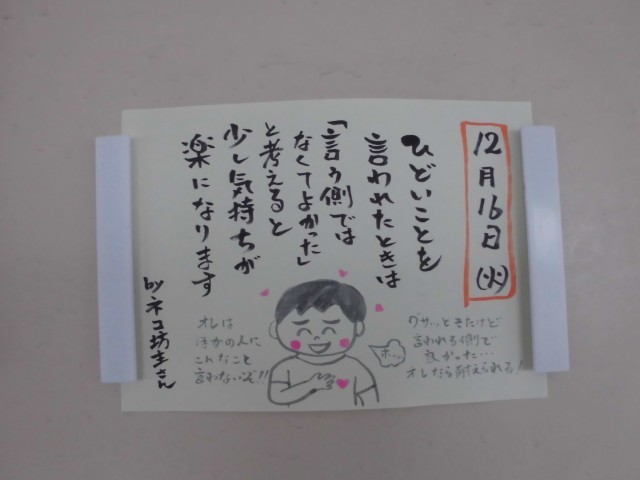 12月16日(火)
ひどいことを
言われたときは
「言う側では
なくてよかった」
と考えると
少し気持ちが
楽になります
byネコ坊主さん
グサッときたけど
言われる側で
良かった…
オレなら耐えられる!
ホッ
オレは
ほかの人に
こんなこと
言わないぞ!!